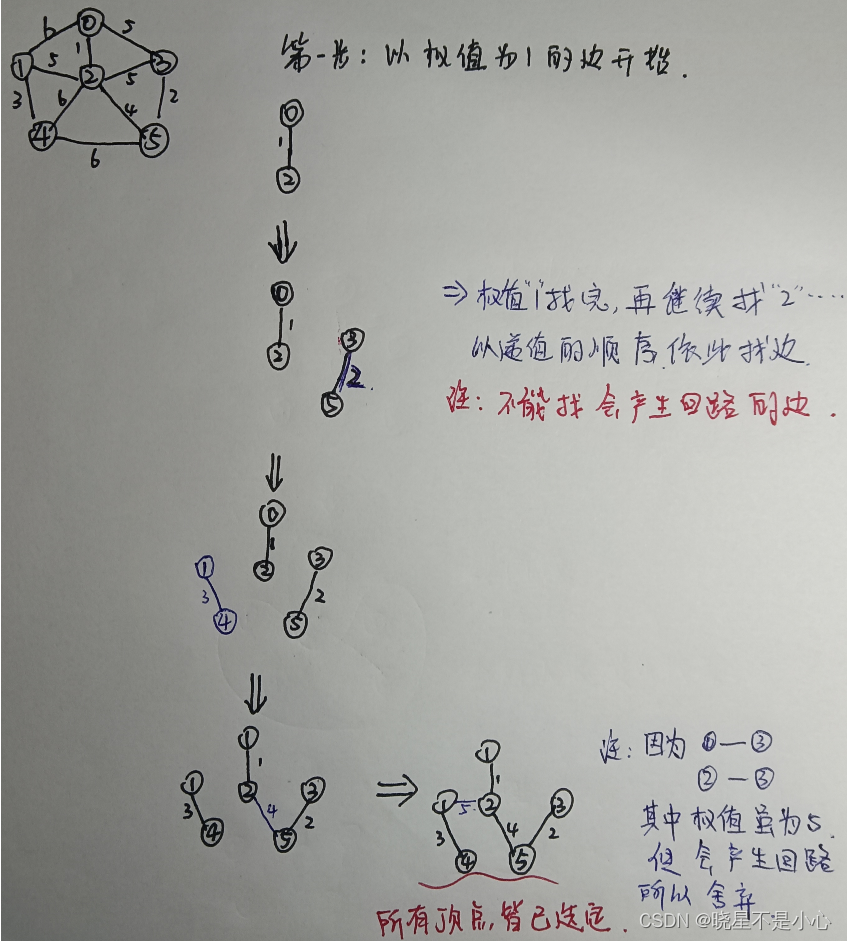 第一步：以权值为1的边开始.
6
0
5
1
1
5
2
5
3
3
6
4
2
4
5
6
0
1
2
0
1
2
3
2.
5
⇒权值"1"找完,再继续找"2"·····
以递值的顺序,依此找边.
注：不能找会产生回路的边.
0
1
2
1
3
4
3
2
5
1
1
2
1
3
4
4
3
2
5
1
1
1
5
2
3
3
4
2
4
5
注：因为 0—3
2—3
其中权值虽为5.
但会产生回路
所以舍弃.
所有顶点,皆已选定.
CSDN @晓星不是小心